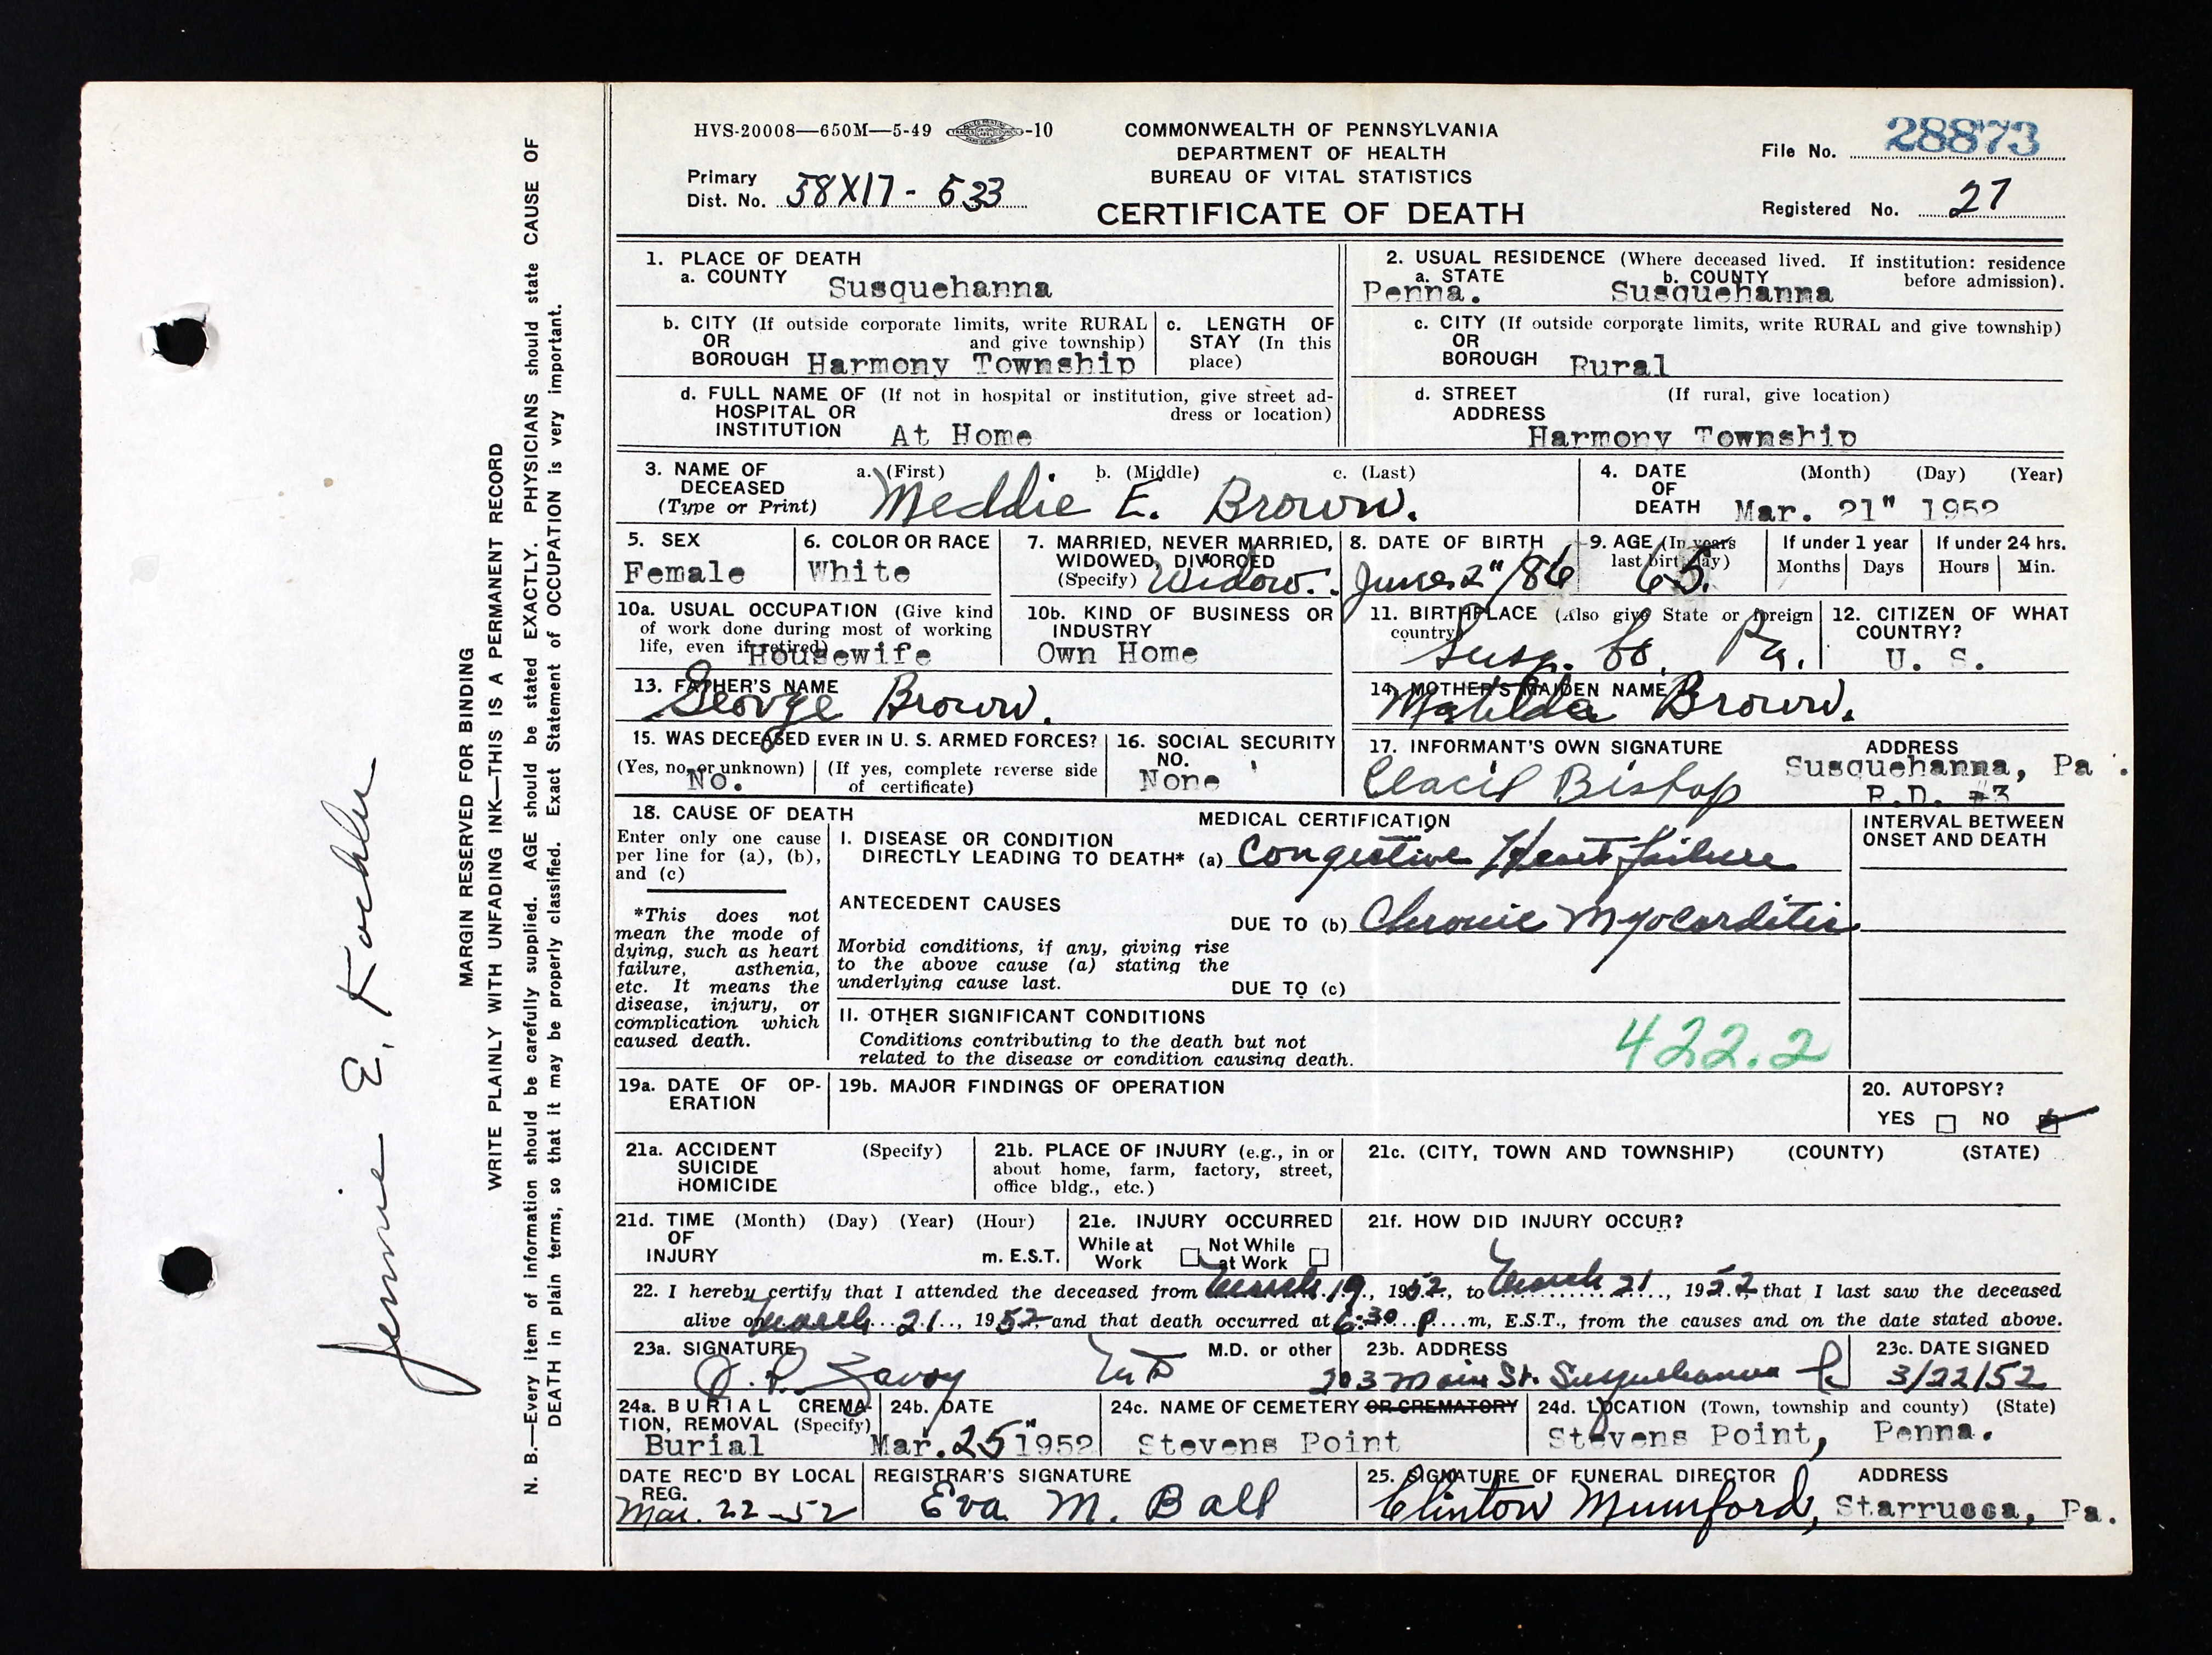 HVS-20008—650M—5-49 -10
COMMONWEALTH OF PENNSYLVANIA
DEPARTMENT OF HEALTH
BUREAU OF VITAL STATISTICS
CERTIFICATE OF DEATH
Primary
Dist. No. 58X17 - 533
File No. 28873
Registered No. 27
1. PLACE OF DEATH
a. COUNTY
Susquehanna
2. USUAL RESIDENCE (Where deceased lived. If institution: residence
before admission).
a. STATE b. COUNTY
Penna. Susquehanna
b. CITY (If outside corporate limits, write RURAL
OR and give township)
BOROUGH Harmony Township
c. LENGTH OF
STAY (In this
place)
c. CITY (If outside corporate limits, write RURAL and give township)
OR
BOROUGH Rural
d. FULL NAME OF (If not in hospital or institution, give street ad-
HOSPITAL OR dress or location)
INSTITUTION At Home
d. STREET (If rural, give location)
ADDRESS
Harmony Township
3. NAME OF a. (First) b. (Middle) c. (Last)
DECEASED
(Type or Print) Meddie E. Brown.
4. DATE (Month) (Day) (Year)
OF
DEATH Mar. 21" 1952
5. SEX
Female
6. COLOR OR RACE
White
7. MARRIED, NEVER MARRIED,
WIDOWED, DIVORCED
(Specify) Widow.
8. DATE OF BIRTH
June 2"/86
9. AGE (In years
last birthday)
65.
If under 1 year
Months Days
If under 24 hrs.
Hours Min.
10a. USUAL OCCUPATION (Give kind
of work done during most of working
life, even if retired)
Housewife
10b. KIND OF BUSINESS OR
INDUSTRY
Own Home
11. BIRTHPLACE (Also give State or foreign
country)
Susq. Co. Pa.
12. CITIZEN OF WHAT
COUNTRY?
U. S.
13. FATHER'S NAME
George Brown.
14. MOTHER'S MAIDEN NAME
Matilda Brown.
15. WAS DECEASED EVER IN U. S. ARMED FORCES?
(Yes, no, or unknown) (If yes, complete reverse side
of certificate)
No.
16. SOCIAL SECURITY
NO.
None
17. INFORMANT'S OWN SIGNATURE ADDRESS
Bishop Susquehanna, Pa.
R.D. #3
18. CAUSE OF DEATH
Enter only one cause
per line for (a), (b),
and (c)
*This does not
mean the mode of
dying, such as heart
failure, asthenia,
etc. It means the
disease, injury, or
complication which
caused death.
MEDICAL CERTIFICATION
I. DISEASE OR CONDITION
DIRECTLY LEADING TO DEATH* (a) Congestive Heart failure
ANTECEDENT CAUSES
DUE TO (b) Chronic Myocarditis
Morbid conditions, if any, giving rise
to the above cause (a) stating the
underlying cause last.
DUE TO (c)
INTERVAL BETWEEN
ONSET AND DEATH
II. OTHER SIGNIFICANT CONDITIONS
Conditions contributing to the death but not
related to the disease or condition causing death.
422.2
19a. DATE OF OP-
ERATION
19b. MAJOR FINDINGS OF OPERATION
20. AUTOPSY?
YES NO
21a. ACCIDENT (Specify)
SUICIDE
HOMICIDE
21b. PLACE OF INJURY (e.g., in or
about home, farm, factory, street,
office bldg., etc.)
21c. (CITY, TOWN AND TOWNSHIP) (COUNTY) (STATE)
21d. TIME (Month) (Day) (Year) (Hour)
OF
INJURY m. E.S.T.
21e. INJURY OCCURRED
While at Not While
Work at Work
21f. HOW DID INJURY OCCUR?
22. I hereby certify that I attended the deceased from March 19, 1952, to March 21, 1952, that I last saw the deceased
alive on March 21, 1952, and that death occurred at 6:30 P. m, E.S.T., from the causes and on the date stated above.
23a. SIGNATURE M.D. or other
MD
23b. ADDRESS
203 Main St. Susquehanna
23c. DATE SIGNED
3/22/52
24a. BURIAL CREMA-
TION, REMOVAL (Specify)
Burial
24b. DATE
Mar. 25" 1952
24c. NAME OF CEMETERY OR CREMATORY
Stevens Point
24d. LOCATION (Town, township and county) (State)
Stevens Point, Penna.
DATE REC'D BY LOCAL
REG.
Mar. 22-52
REGISTRAR'S SIGNATURE
Eva M. Ball
25. SIGNATURE OF FUNERAL DIRECTOR ADDRESS
Clinton Mumford, Starrucca, Pa.
MARGIN RESERVED FOR BINDING
WRITE PLAINLY WITH UNFADING INK—THIS IS A PERMANENT RECORD
N. B.—Every item of information should be carefully supplied. AGE should be stated EXACTLY. PHYSICIANS should state CAUSE OF
DEATH in plain terms, so that it may be properly classified. Exact Statement of OCCUPATION is very important.
Jennie E.